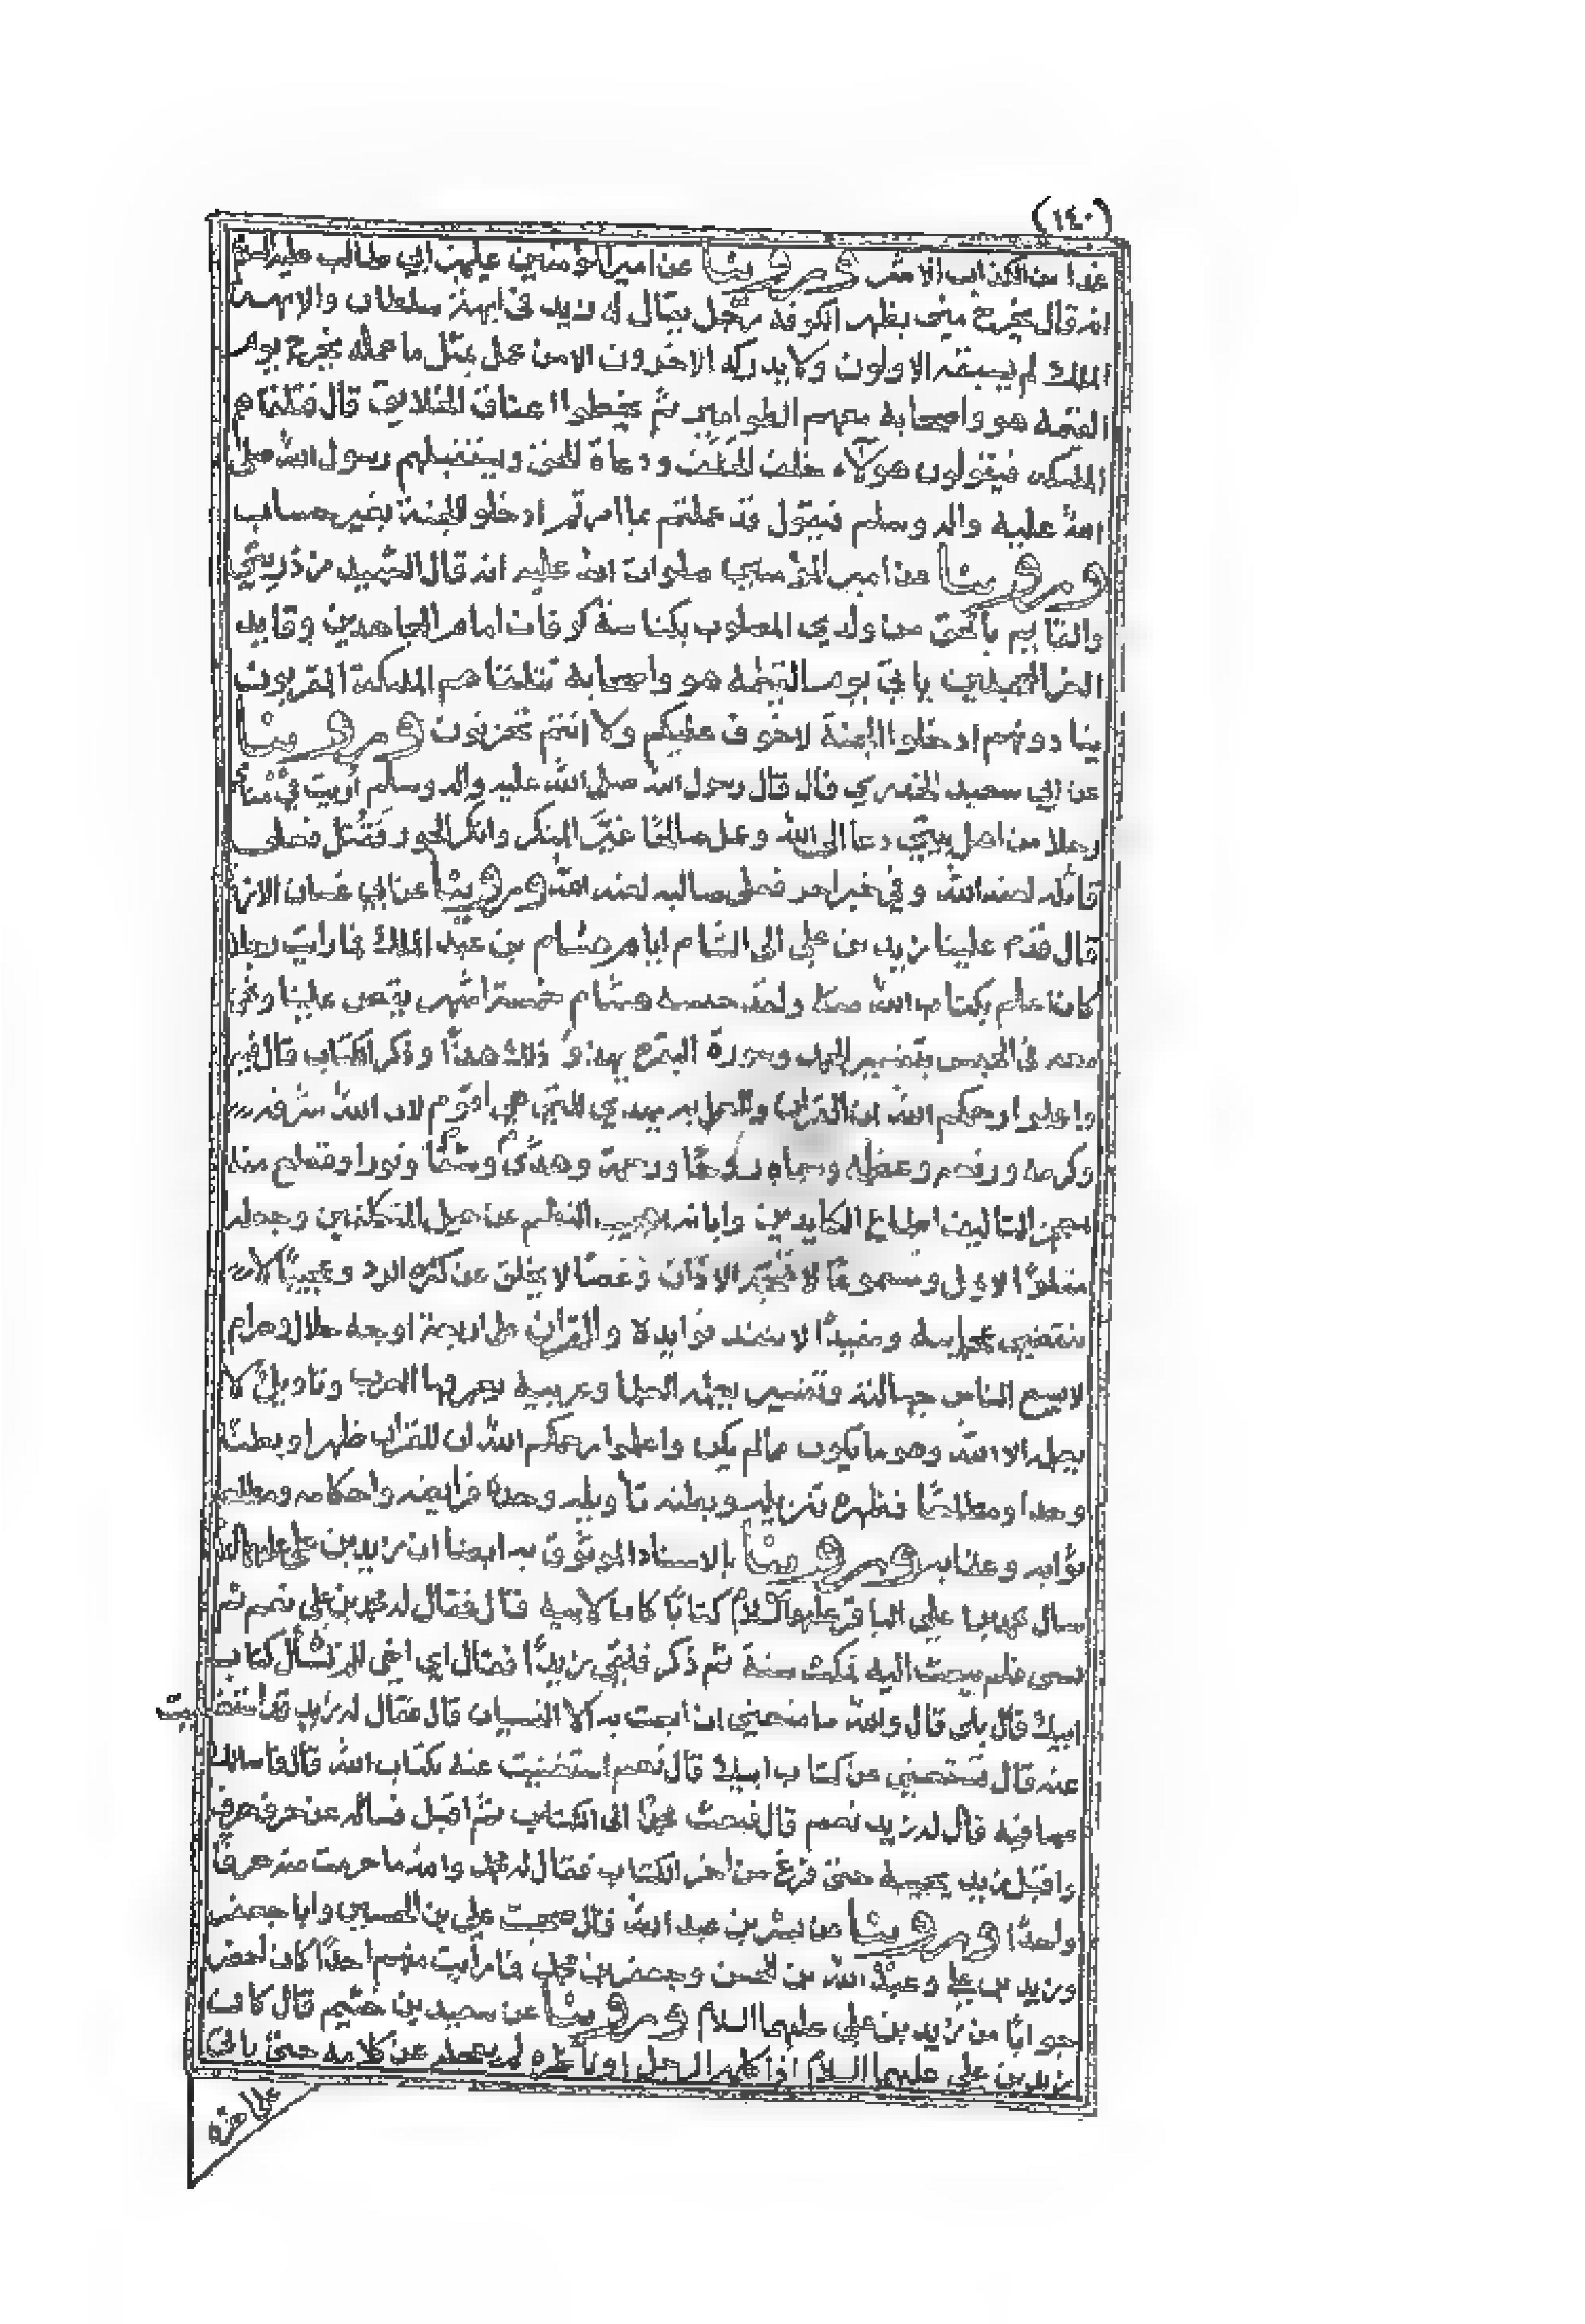 (١٤٠)
عن امير المؤمنين علي بن ابي طالب عليه
انه قال يخرج مني بظهر الكوفة رجل يقال له زيد في ابهة سلطان والابهة
الملك لم يسبقه الاولون ولا يدركه الاخرون الا من عمل بمثل ما عمله يخرج يوم
القيمة هو واصحابه معهم الطوامير ثم يخطوا اعناق الخلائق قال فتلقاهم
الملئكه فيقولون هولاء خلف الخلف ودعاة الحق ويستقبلهم رسول الله صلى
الله عليه واله وسلم فيقول قد عملتم بما امرتم ادخلوا الجنة بغير حساب
وروينا عن امير المؤمنين صلوات الله عليه انه قال الشهيد من ذريتي
والقايم بالحق من ولدي المصلوب بكناسة كوفان امام المجاهدين وقايد
الغر المحجلين ياتي يوم القيمه هو واصحابه تتلقاهم الملئكة المقربون
ينادونهم ادخلوا الجنة لا خوف عليكم ولا انتم تحزنون وروينا
عن ابي سعيد الخدري قال قال رسول الله صلى الله عليه واله وسلم أريت في
رجلا من اهل بيتي دعا الى الله وعمل صالحا غيّر المنكر وانكر الجور فقُتل فعلى
قاتله لعنة الله وفي خبر اخر فعلى صالبه لعنه الله وروينا عن ابي غسان الازدي
قال قدم علينا زيد بن علي الى الشام ايام هشام بن عبد الملك فما رايت رجلا
كان اعلم بكتاب الله منه ولقد حبسه هشام خمسة اشهر يقص علينا ونحن
معه في الحبس بتفسير الحمد وسورة البقرة يهذ ذلك هذا وذكر الكتاب قال فيه
واعلموا رحمكم الله ان القران والعمل به يهدي للتي هي اقوم لان الله شرفه
وكرمه ورفعه وعظمه وسماه روحا ورحمة وهدى وشفا ونورا وقطع منه
بمعجز التاليف اطماع الكايدين وابانه بعجيب النظم عن حيل المتكلفين وجعله
متلوا لا يمل ومسموعا لا تمجه الاذان وغضا لا يخلق عن كثرة الرد وعجيبا لا
تنقضي عجايبه ومفيدا لا تنفد فوايده والقران على اربعة اوجه حلال وحرام
لا يسع الناس جهالته وتفسير يعلمه العلما وعربية يعرفها العرب وتاويل لا
يعلمه الا الله وهو ما يكون مما لم يكن واعلموا رحمكم الله ان للقران ظهرا وبطنا
وحدا ومطلعا فظهره تنزيله وبطنه تاويله وحده فرايضه واحكامه ومطلعه
ثوابه وعقابه وروينا بالاسناد الموثوق به ايضا ان زيد بن علي عليهما السلام
سال محمد بن علي الباقر عليهما السلام كتابا كان لابيه قال فقال له محمد بن علي نعم ثم
نسي فلم يبعث اليه فمكث سنة ثم ذكر فلقي زيدا فقال اي اخي الم تسأل كتاب
ابيك قال بلى قال والله ما منعني ان ابعث به الا النسيان قال فقال له زيد قد استغنيت
عنه قال تستغني عن كتاب ابيك قال نعم استغنيت عنه بكتاب الله قال فاسالك
عما فيه قال له زيد نعم قال فبعث محمد الى الكتاب ثم اقبل فساله عن حرف حرف
واقبل زيد يجيبه حتى فرغ من اخر الكتاب فقال له محمد والله ما حرمت منه حرفا
واحدا وروينا عن بشر بن عبد الله قال صحبت علي بن الحسين وابا جعفر
وزيد بن علي وعبد الله بن الحسن وجعفر بن محمد فما رأيت منهم احدا كان احضر
جوابا من زيد بن علي عليهما السلام وروينا عن سعيد بن خثيم قال كان
زيد بن علي عليهما السلام اذا كلمه الرجل او ناظره لم يعجله عن كلامه حتى ياتي
على اخره